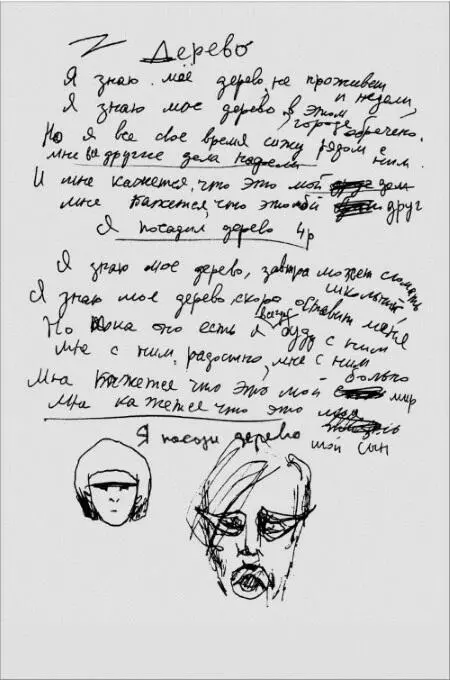 Дерево
Я знаю моё дерево не проживёт и недели,
Я знаю мое дерево в этом городе обречено.
Но я все свое время сижу рядом с ним
мне все другие дела надоели
И мне кажется, что это мой дом
мне кажется, что это мой друг
Я посадил дерево 4р
Я знаю мое дерево, завтра может сломать школьник
Я знаю мое дерево скоро оставит меня
Но пока оно есть я всегда буду с ним
мне с ним радостно, мне с ним больно
Мне кажется что это мой мир
Мне кажется что это мой сын
Я посадил дерево